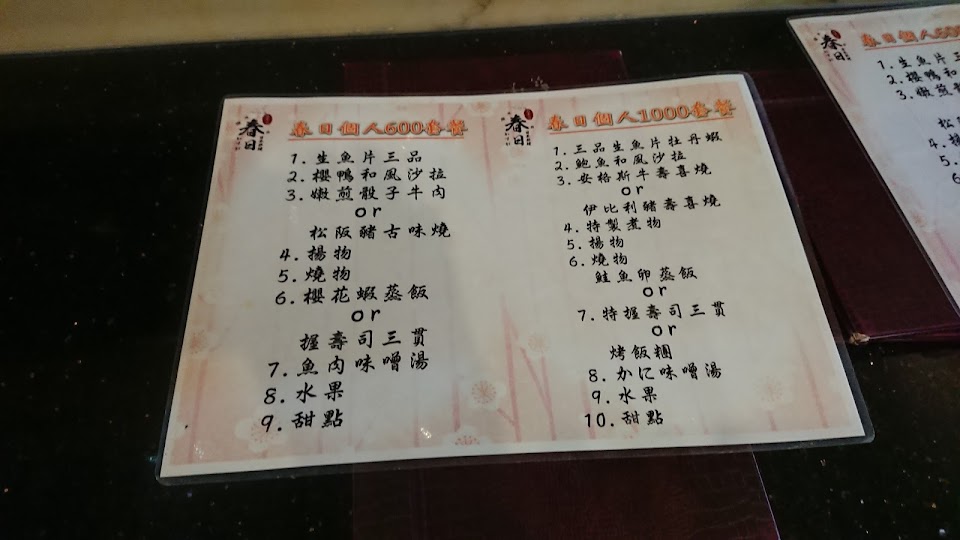 春日
春日個人600套餐
1. 生魚片三品
2. 櫻鴨和風沙拉
3. 嫩煎骰子牛肉
or
松阪豬古味燒
4. 揚物
5. 燒物
6. 櫻花蝦蒸飯
or
握壽司三貫
7. 魚肉味噌湯
8. 水果
9. 甜點
春日
春日個人1000套餐
1. 三品生魚片牡丹蝦
2. 鮑魚和風沙拉
3. 安格斯牛壽喜燒
or
伊比利豬壽喜燒
4. 特製煮物
5. 揚物
6. 燒物
鮭魚卵蒸飯
or
7. 特握壽司三貫
or
烤飯糰
8. かに味噌湯
9. 水果
10. 甜點
春日
春日個人600
1. 生魚片三
2. 櫻鴨和
3. 嫩煎
松阪
4. 揚
5.
6